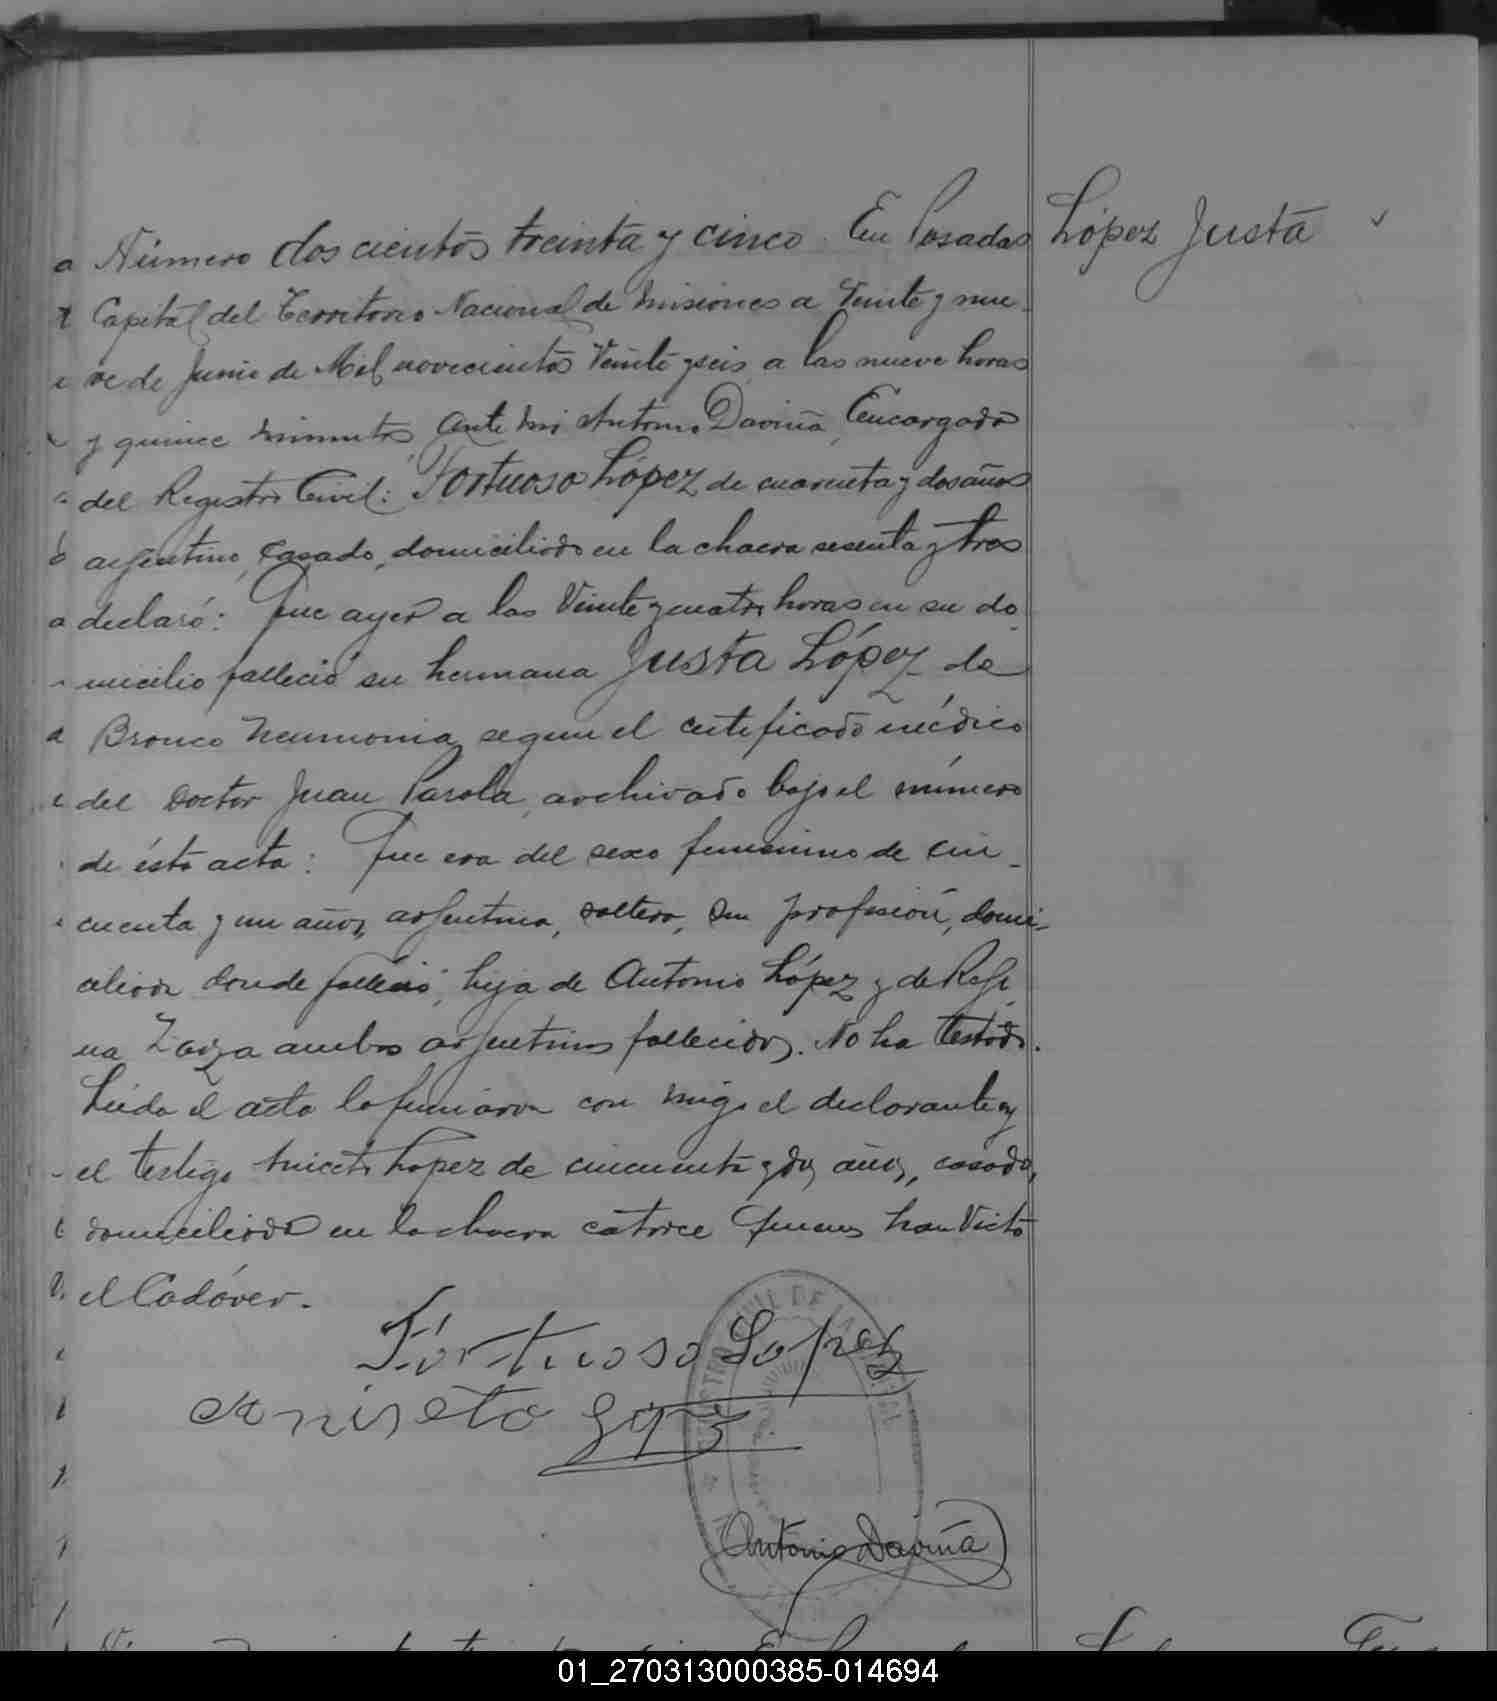 López Justa
Número dos cientos treinta y cinco. En Posadas
Capital del Territorio Nacional de Misiones a Veinte y nue-
ve de Junio de Mil novecientos Veinte y seis a las nueve horas
y quince minutos, Ante mi Antonio Daviña, Encargado
del Registro Civil: Fortuoso López de cuarenta y dos años
argentino, casado, domiciliado en la chacra sesenta y tres
declaró: Que ayer a las Veinte y cuatro horas en su do
micilio falleció su hermana Justa López de
Bronco Neumonia segun el certificado médico
del Doctor Juan Parola, archivado bajo el número
de ésta acta: Que era del sexo femenino de cin-
cuenta y un años, argentina, soltera, sin profesión, domi-
ciliada donde falleció, hija de Antonio López y de
na ambos argentinos fallecidos. No ha testado.
Leida el acta la firmaron con migo el declarante y
el testigo López de cincuenta y dos años, casado,
domiciliado en la chacra catorce quienes han Visto
el Cadáver.
Fortuoso Lopez
Aniseto
Antonio Daviña
REGISTRO CIVIL DE LA CAPITAL
01_270313000385-014694